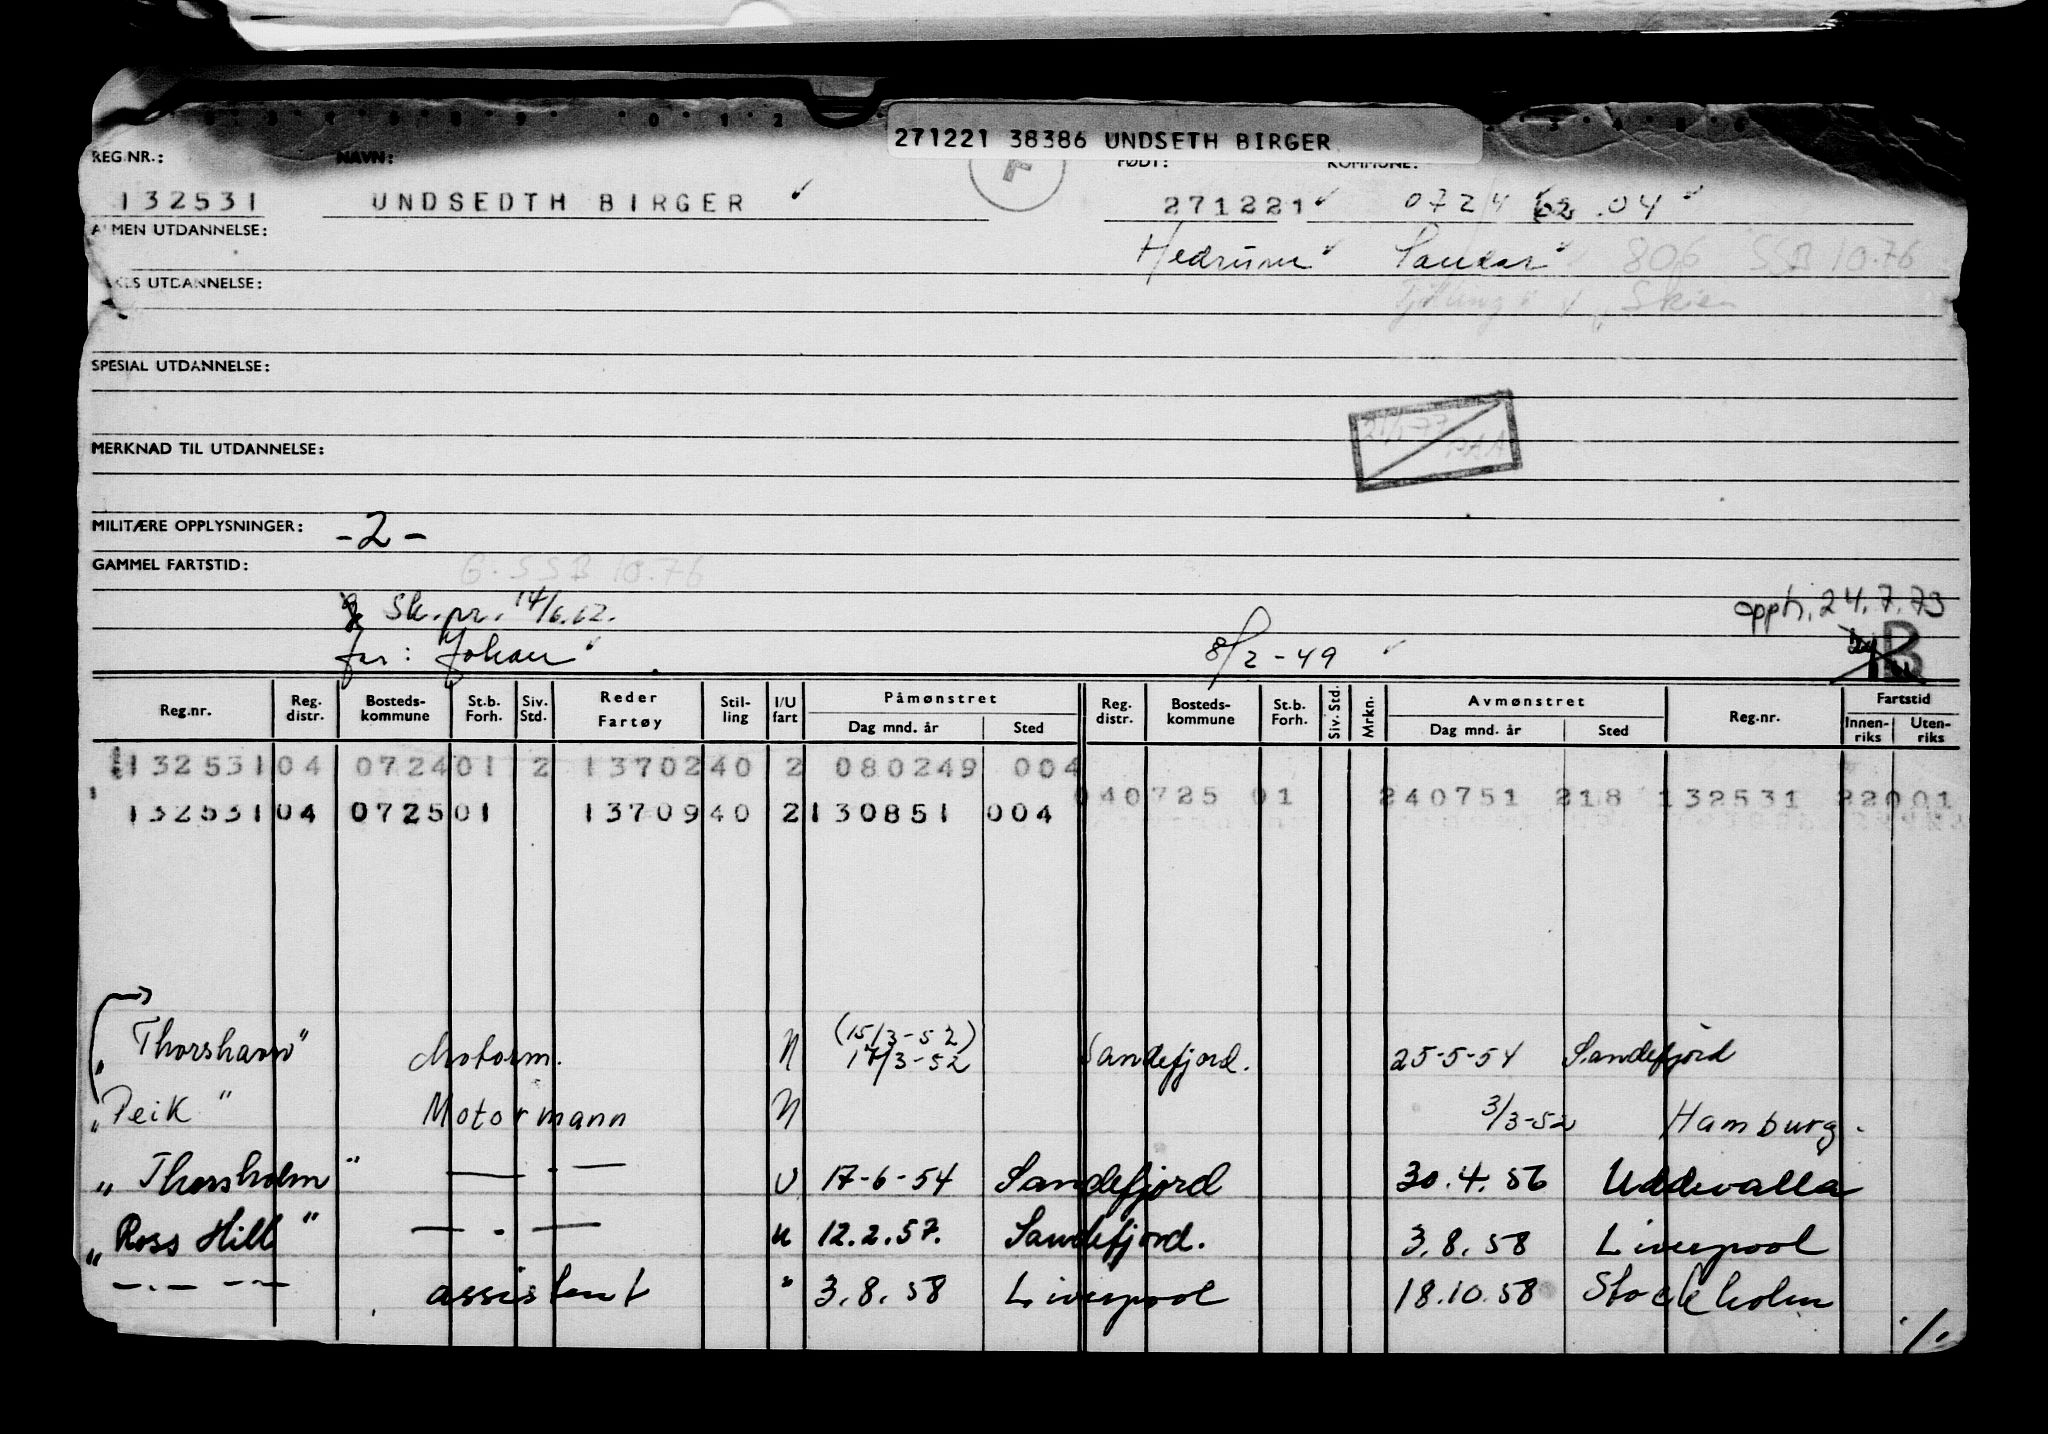 271221 38386 UNDSETH BIRGER
REG.NR.: NAVN: FØDT: KOMMUNE:
132531 UNDSEDTH BIRGER 271221 0724 .04
ALMEN UTDANNELSE: Hedrum Sandar 806 SSB 10.76
UTDANNELSE: Tjølling Skien
SPESIAL UTDANNELSE:
MERKNAD TIL UTDANNELSE:
MILITÆRE OPPLYSNINGER: -2-
GAMMEL FARTSTID: G. SSB 10.76
Sk.pr. 14/6.62. 24.7.73
far: Johan 8/2-49 B
Reg.nr. Reg. distr. Bosteds-kommune St.b. Forh. Siv. Std. Reder Fartøy Stil-ling I/U fart Påmønstret Dag mnd. år Sted Reg. distr. Bosteds-kommune St.b. Forh. Siv. Std. Mrkn. Avmønstret Dag mnd. år Sted Reg.nr. Fartstid Innen-riks Uten-riks
132531 04 0724 01 2 13702 40 2 080249 004
040725 01 240751 218 132531 22001
132531 04 0725 01 13709 40 2 130851 004
"Thorshavn" Motorm. N (15/3-52) 17/3-52 Sandefjord. 25-5-54 Sandefjord
"Peik" Motormann N 3/3-52 Hamburg.
"Thorsholm" — · — U 17-6-54 Sandefjord 30.4.56 Uddevalla
"Ross Hill" — · — u 12.2.57. Sandefjord. 3.8.58 Liverpool
— · — · — assistent " 3.8.58 Liverpool 18.10.58 Stockholm
·/·